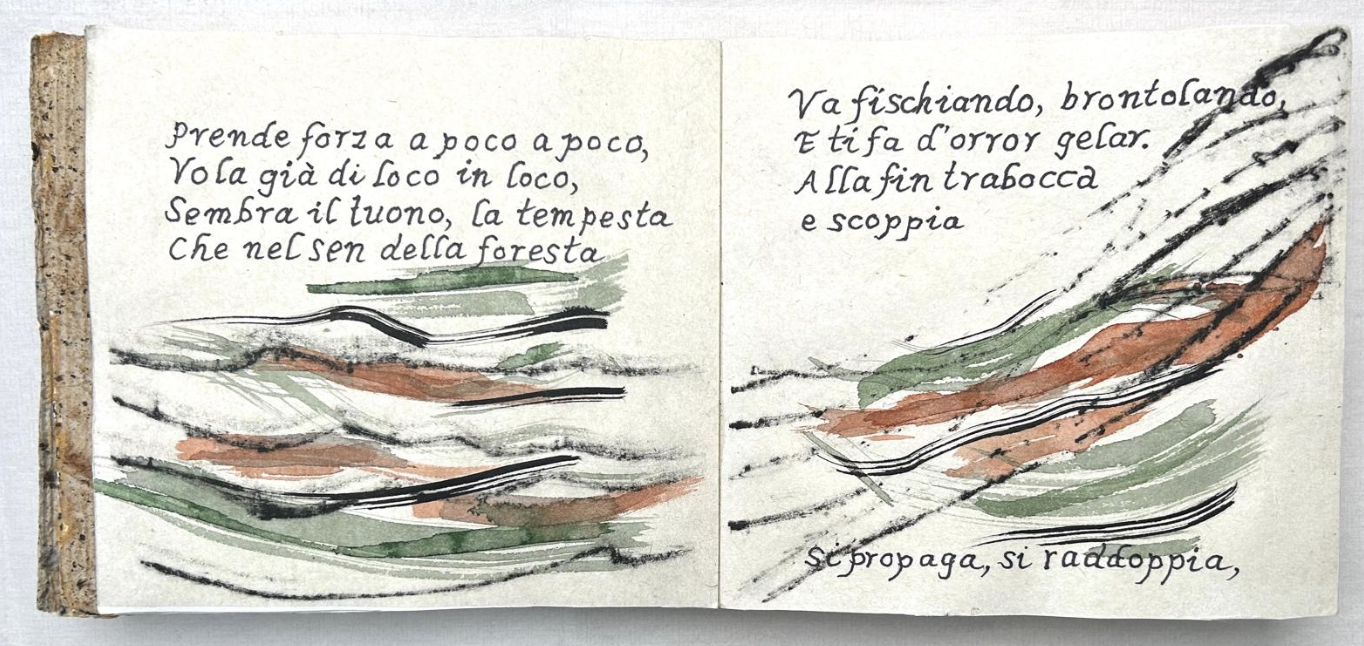 Prende forza a poco a poco,
Vola già di loco in loco,
Sembra il tuono, la tempesta
Che nel sen della foresta
Va fischiando, brontolando,
E ti fa d'orror gelar.
Alla fin trabocca
e scoppia
Si propaga, si raddoppia,